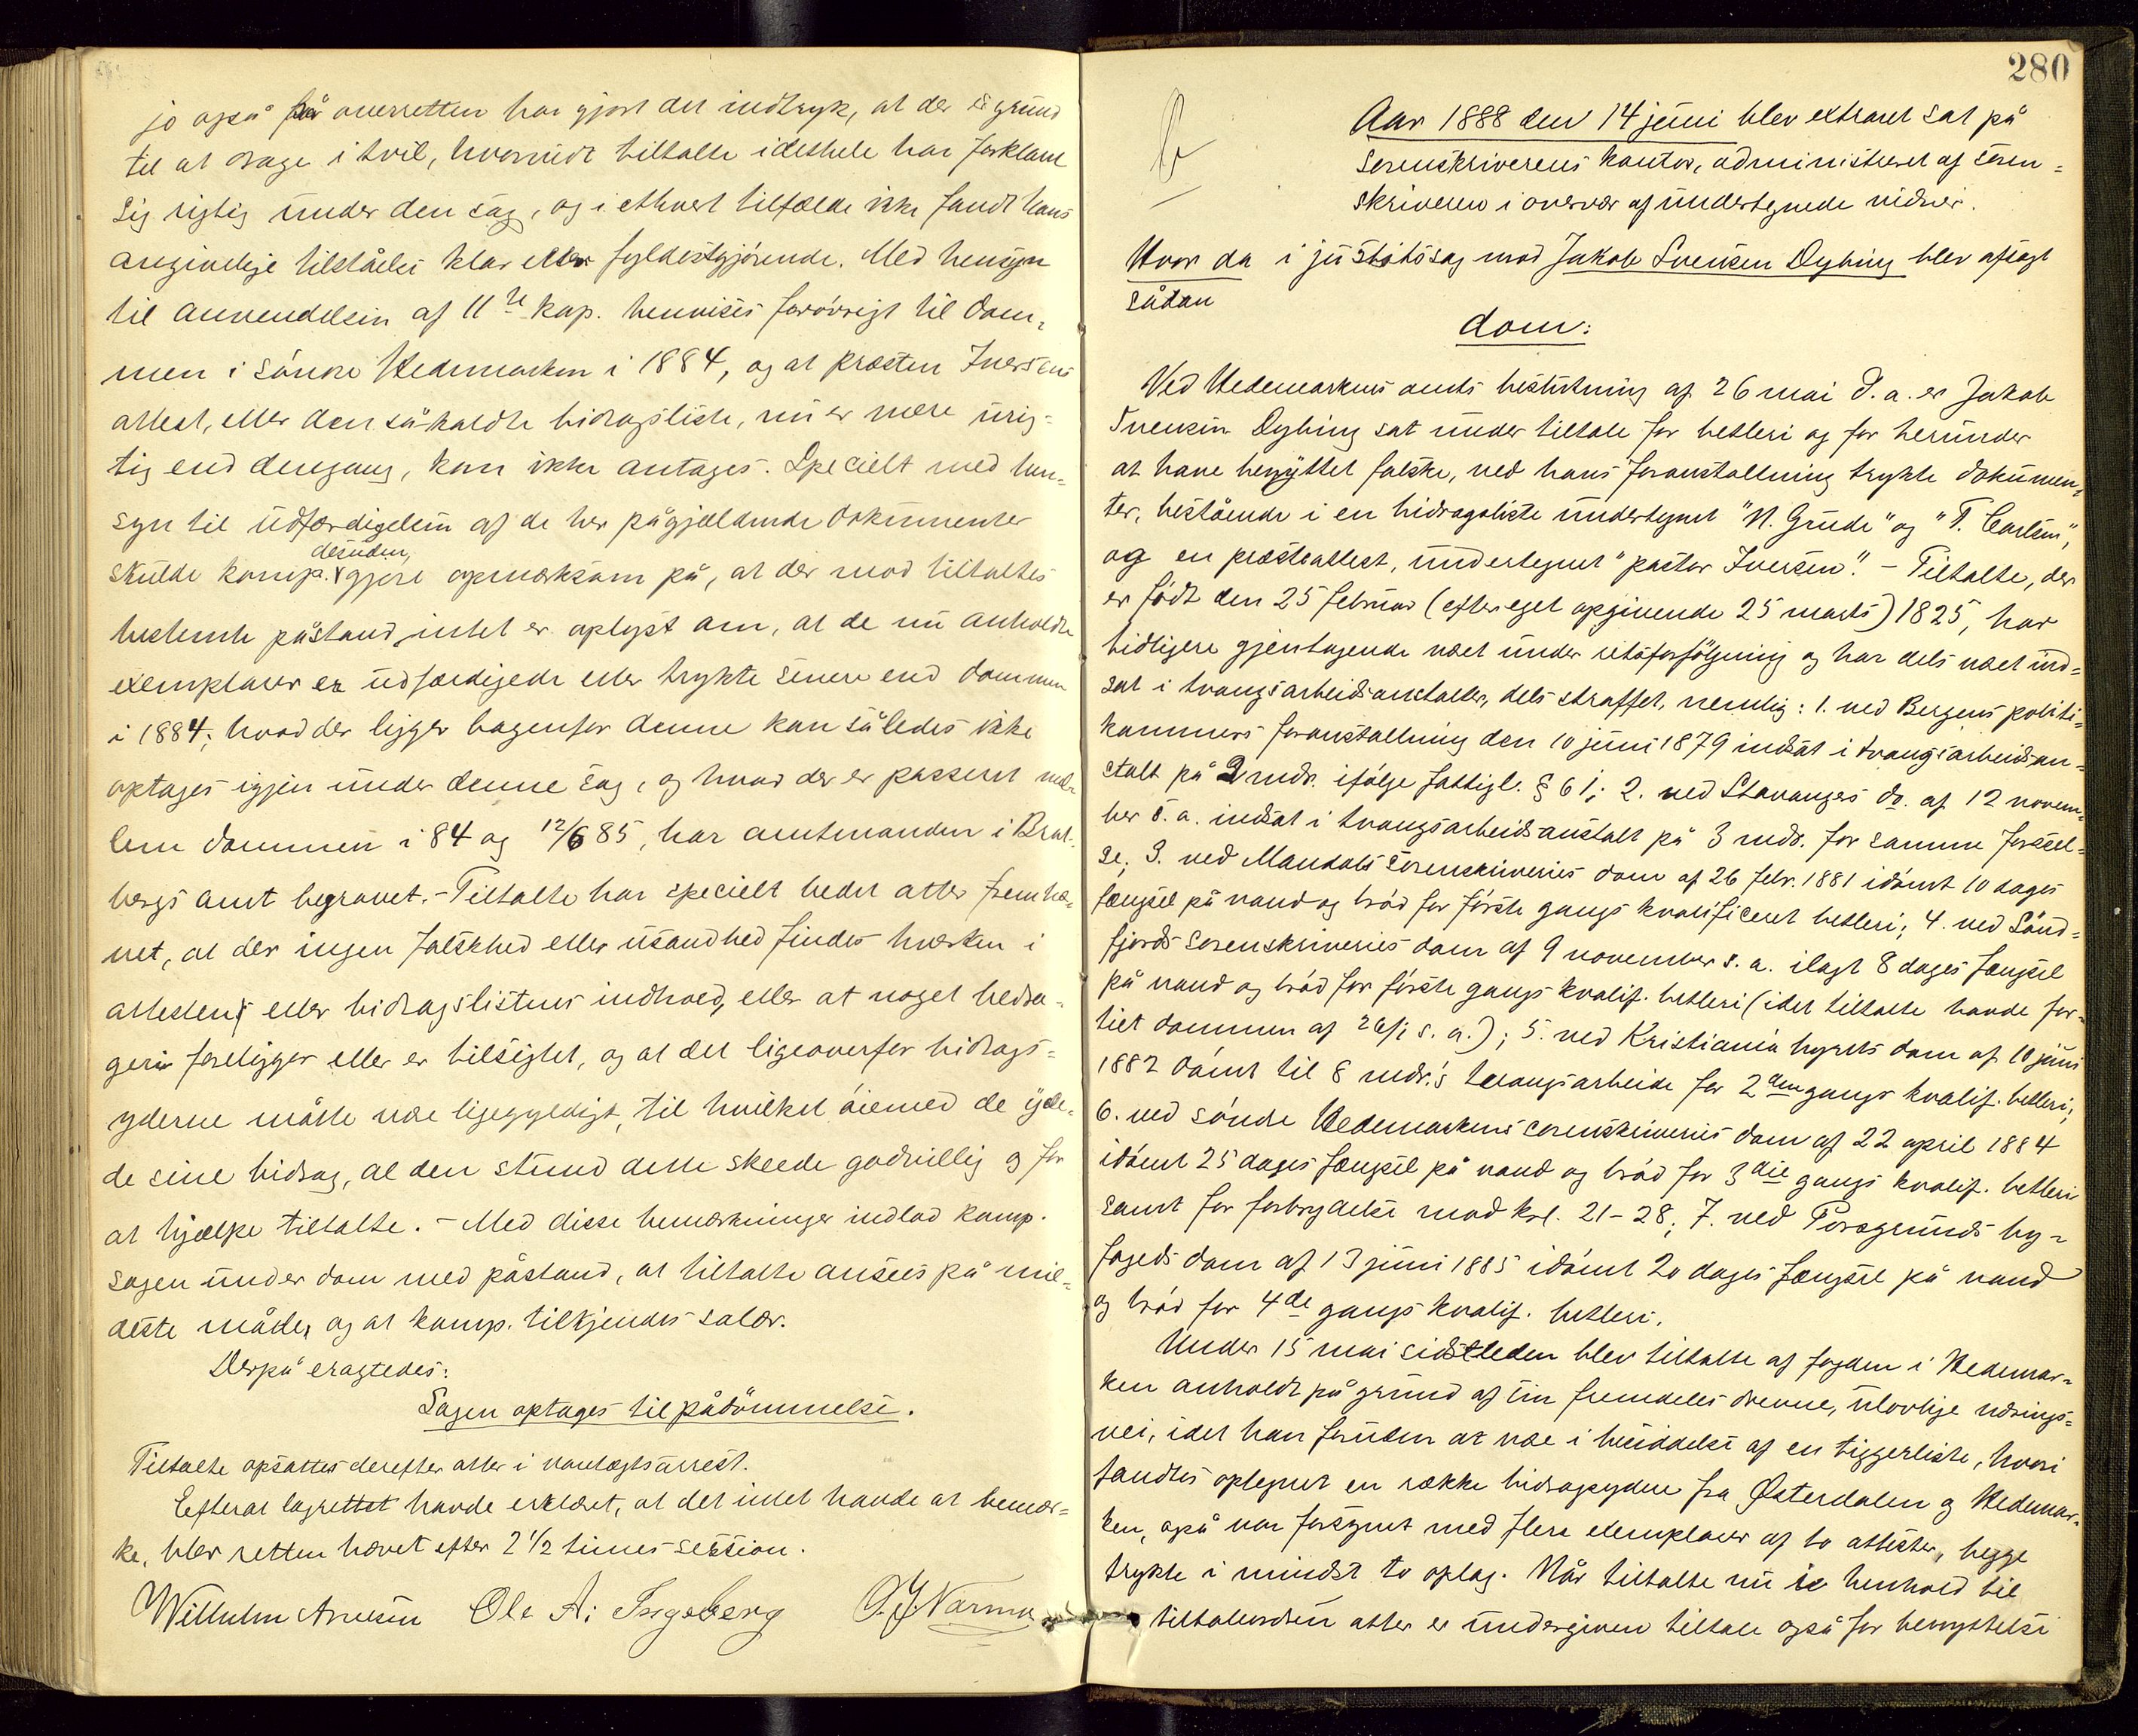 jo også på overretten har gjort det indtryk, at der er grund
til at drage i tvil, hvorvidt tiltalte idethele har forklaret
sig rigtig under den sag, og i ethvert tilfælde ikke fandt hans
angivelige tilståelse klar eller fyldestgjørende. Med hensyn
til anvendelsen af 11te kap. henvises forøvrigt til dom-
men i søndre Hedemarken i 1884, og at præsten Iversens
attest, eller den såkaldte bidragsliste, nu er mere urig-
tig end dengang, kan ikke antages. Specielt med hen-
syn til udfærdigelsen af de her pågjældende dokumenter
skulde komp. desuden gjøre opmærksom på, at der mod tiltaltes
bestemte påstand intet er oplyst om, at de nu anholdte
exemplarer er udfærdigede eller trykte senere end dommen
i 1884; hvad der ligger bagenfor denne kan således ikke
optages igjen under denne sag, og hvad der er passeret mel-
lem dommen i 84 og 12/6 85, har amtmanden i Brat-
bergs amt begravet. - Tiltalte har specielt bedet atter fremhæ-
vet, at der ingen falskhed eller usandhed findes hverken i
attestens eller bidragslistens indhold, eller at noget bedra-
geri foreligger eller er tilsigtet, og at det ligeoverfor bidrags-
yderne måtte være ligegyldigt, til hvilket øiemed de yde-
de sine bidrag, al den stund dette skeede godvillig og for
at hjælpe tiltalte. - Med disse bemærkninger indlod komp.
sagen under dom med påstand, at tiltalte ansees på mil-
deste måde, og at komp. tilkjendes salær.
Derpå eragtedes:
Sagen optages til pådømmelse.
Tiltalte opsattes derefter atter i varetægtsarrest.
Efterat lagrettet havde erklæret, at det intet havde at bemær-
ke, blev retten hævet efter 2 1/2 times session.
Wilhelm Arvesen Ole A: Ingeberg
280
Aar 1888 den 14 juni blev extraret sat på
sorenskriverens kontor, administreret af soren-
skriveren i overvær af undertegnede vidner.
Hvor da i justitssag mod Jakob Svensen Dybing blev aflagt
sådan
dom:
Ved Hedemarkens amts beslutning af 26 mai d. a. er Jakob
Svensen Dybing sat under tiltale for betleri og for herunder
at have benyttet falske, ved hans foranstaltning trykte dokumen-
ter, bestående i en bidragsliste undertegnet "N. Grude" og "T. Carlsen",
og en præsteattest, undertegnet "pastor Iversen". - Tiltalte, der
er født den 25 februar (efter eget opgivende 25 marts) 1825, har
tidligere gjentagende været under retsforfølgning og har dels været ind-
sat i tvangsarbeidsanstalter, dels straffet, nemlig: 1. ved Bergens politi-
kammers foranstaltning den 10 juni 1879 indsat i tvangsarbeidsan-
stalt på 2 mdr. ifølge fattigl. § 61; 2. ved Stavanger do. af 12 novem-
ber s. a. indsat i tvangsarbeidsanstalt på 3 mdr. for samme forseel-
se; 3. ved Mandals sorenskriveries dom af 26 febr. 1881 idømt 10 dages
fængsel på vand og brød for første gangs kvalificeret betleri; 4. ved Sønd-
fjords sorenskriveries dom af 9 november s. a. ilagt 8 dages fængsel
på vand og brød for første gangs kvalif. betleri (idet tiltalte havde for-
tiet dommen af 26/2 s. a.); 5. ved Kristiania byrets dom af 10 juni
1882 dømt til 8 mdr.s tvangsarbeide for 2den gangs kvalif. betleri;
6. ved søndre Hedemarkens sorenskriveries dom af 22 april 1884
idømt 25 dages fængsel på vand og brød for 3die gangs kvalif. betleri
samt for forbrydelse mod krl. 21-28; 7. ved Porsgrunds by-
fogeds dom af 13 juni 1885 idømt 20 dages fængsel på vand
og brød for 4de gangs kvalif. betleri.
Under 15 mai sidstleden blev tiltalte af fogden i Hedemar-
ken anholdt på grund af sin fremdeles drevne, ulovlige nærings-
vei, idet han foruden at være i besiddelse af en tiggerliste, hvori
fandtes optegnet en række bidragsydere fra Østerdalen og Hedemar-
ken, også var forsynet med flere exemplarer af to attester, begge
trykte i mindst to oplag. Når tiltalte nu i henhold til
tiltalordren atter er undergiven tiltale også for benyttelse